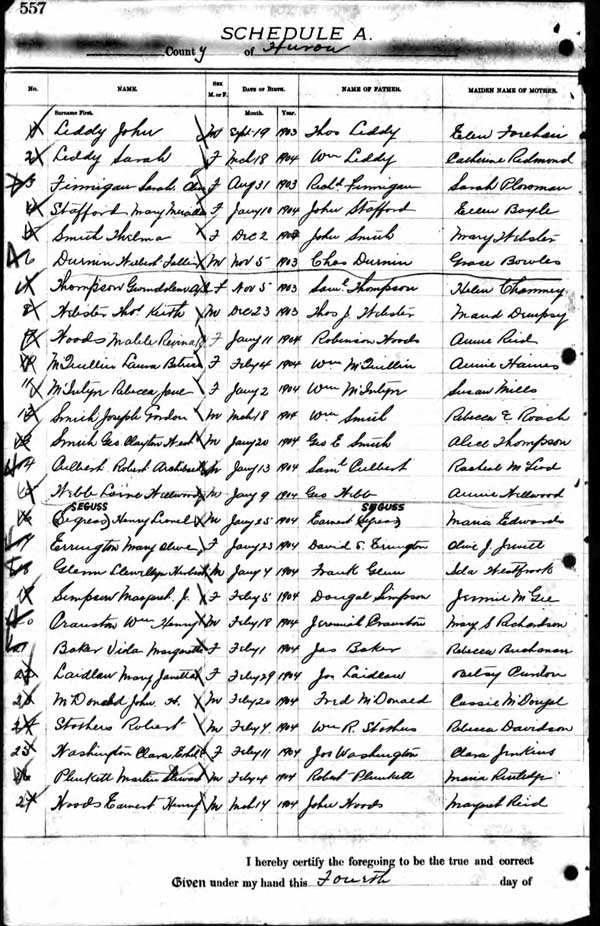 557
SCHEDULE A.
County of Huron
No. NAME. SEX M. or F. DATE OF BIRTH. NAME OF FATHER. MAIDEN NAME OF MOTHER.
Surname First. Month. Year.
1 Leddy John M Sept 19 1903 Thos Leddy Ellen
2 Leddy Sarah F Mch 18 1904 Wm Leddy Catherine Redmond
3 Finnigan Sarah F Aug 31 1903 Richd Finnigan Sarah Plowman
4 Stafford Mary F Jany 10 1904 John Stafford Ellen Boyle
5 Smith Thelma F Dec 2 John Smith Mary Webster
6 Durnin M Nov 5 1903 Chas Durnin Grace Bowles
Thompson F Nov 5 1903 Saml Thompson Helen Chamney
8 Webster Thos Keith M Dec 23 1903 Thos J Webster Maud Dempsy
Woods Mabele F Jany 11 1904 Robinson Woods Annie Reid
McQuillin Laura F Feby 4 1904 Wm McQuillin Annie Haines
11 McIntyn Rebecca Jane F Jany 2 1904 Wm McIntyn Susan Mills
Smith Joseph Gordon M Mch 18 1904 Wm Smith Rebecca E Roach
Smith Geo Clayton M Jany 20 1904 Geo E Smith Alice Thompson
Culbert Robert M Jany 13 1904 Saml Culbert Racheal
Webb M Jany 9 1904 Geo Webb Annie
SEGUSS SEGUSS
Henry Lionel M Jany 25 1904 Earnest Maria Edwards
Errington Mary Olive F Jany 23 1904 David E. Errington Olive J Jewell
Glenn Llewellyn M Jany 4 1904 Frank Glenn Ida Westbrook
Simpson Margaret J. F Feby 5 1904 Dougal Simpson Jennie McGee
Cranston Wm Henry M Feby 18 1904 Jeremiah Cranston Mary S Richardson
Baker Viola Margarette F Feby 1 1904 Jas Baker Rebecca Buchanan
Laidlaw Mary Janetta F Feby 29 1904 Jos Laidlaw Betsy
McDonald John H. M Feby 20 1904 Fred McDonald Cassie
24 Stothers Robert M Feby 4 1904 Wm R. Stothers Rebecca Davidson
25 Washington Clara F Feby 11 1904 Jos Washington Clara Jenkins
Plunkett Martin M Feby 4 1904 Robert Plunkett Maria Rutledge
27 Woods Earnest Henry M Mch 14 1904 John Woods Margaret Reid
I hereby certify the foregoing to be the true and correct
Given under my hand this Fourth day of